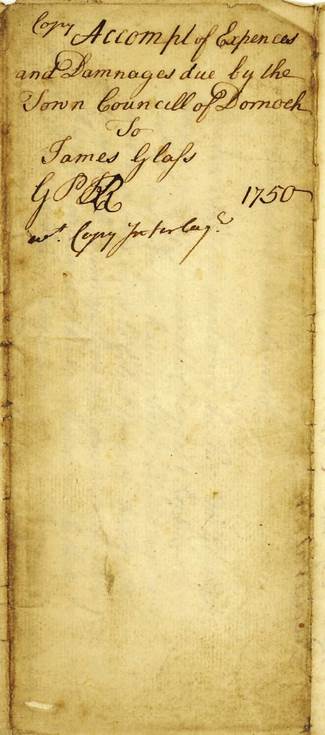 Copy Accompt of Expences
and Damnages due by the
Town Councill of Dornoch
To
James Glass
1750
Copy